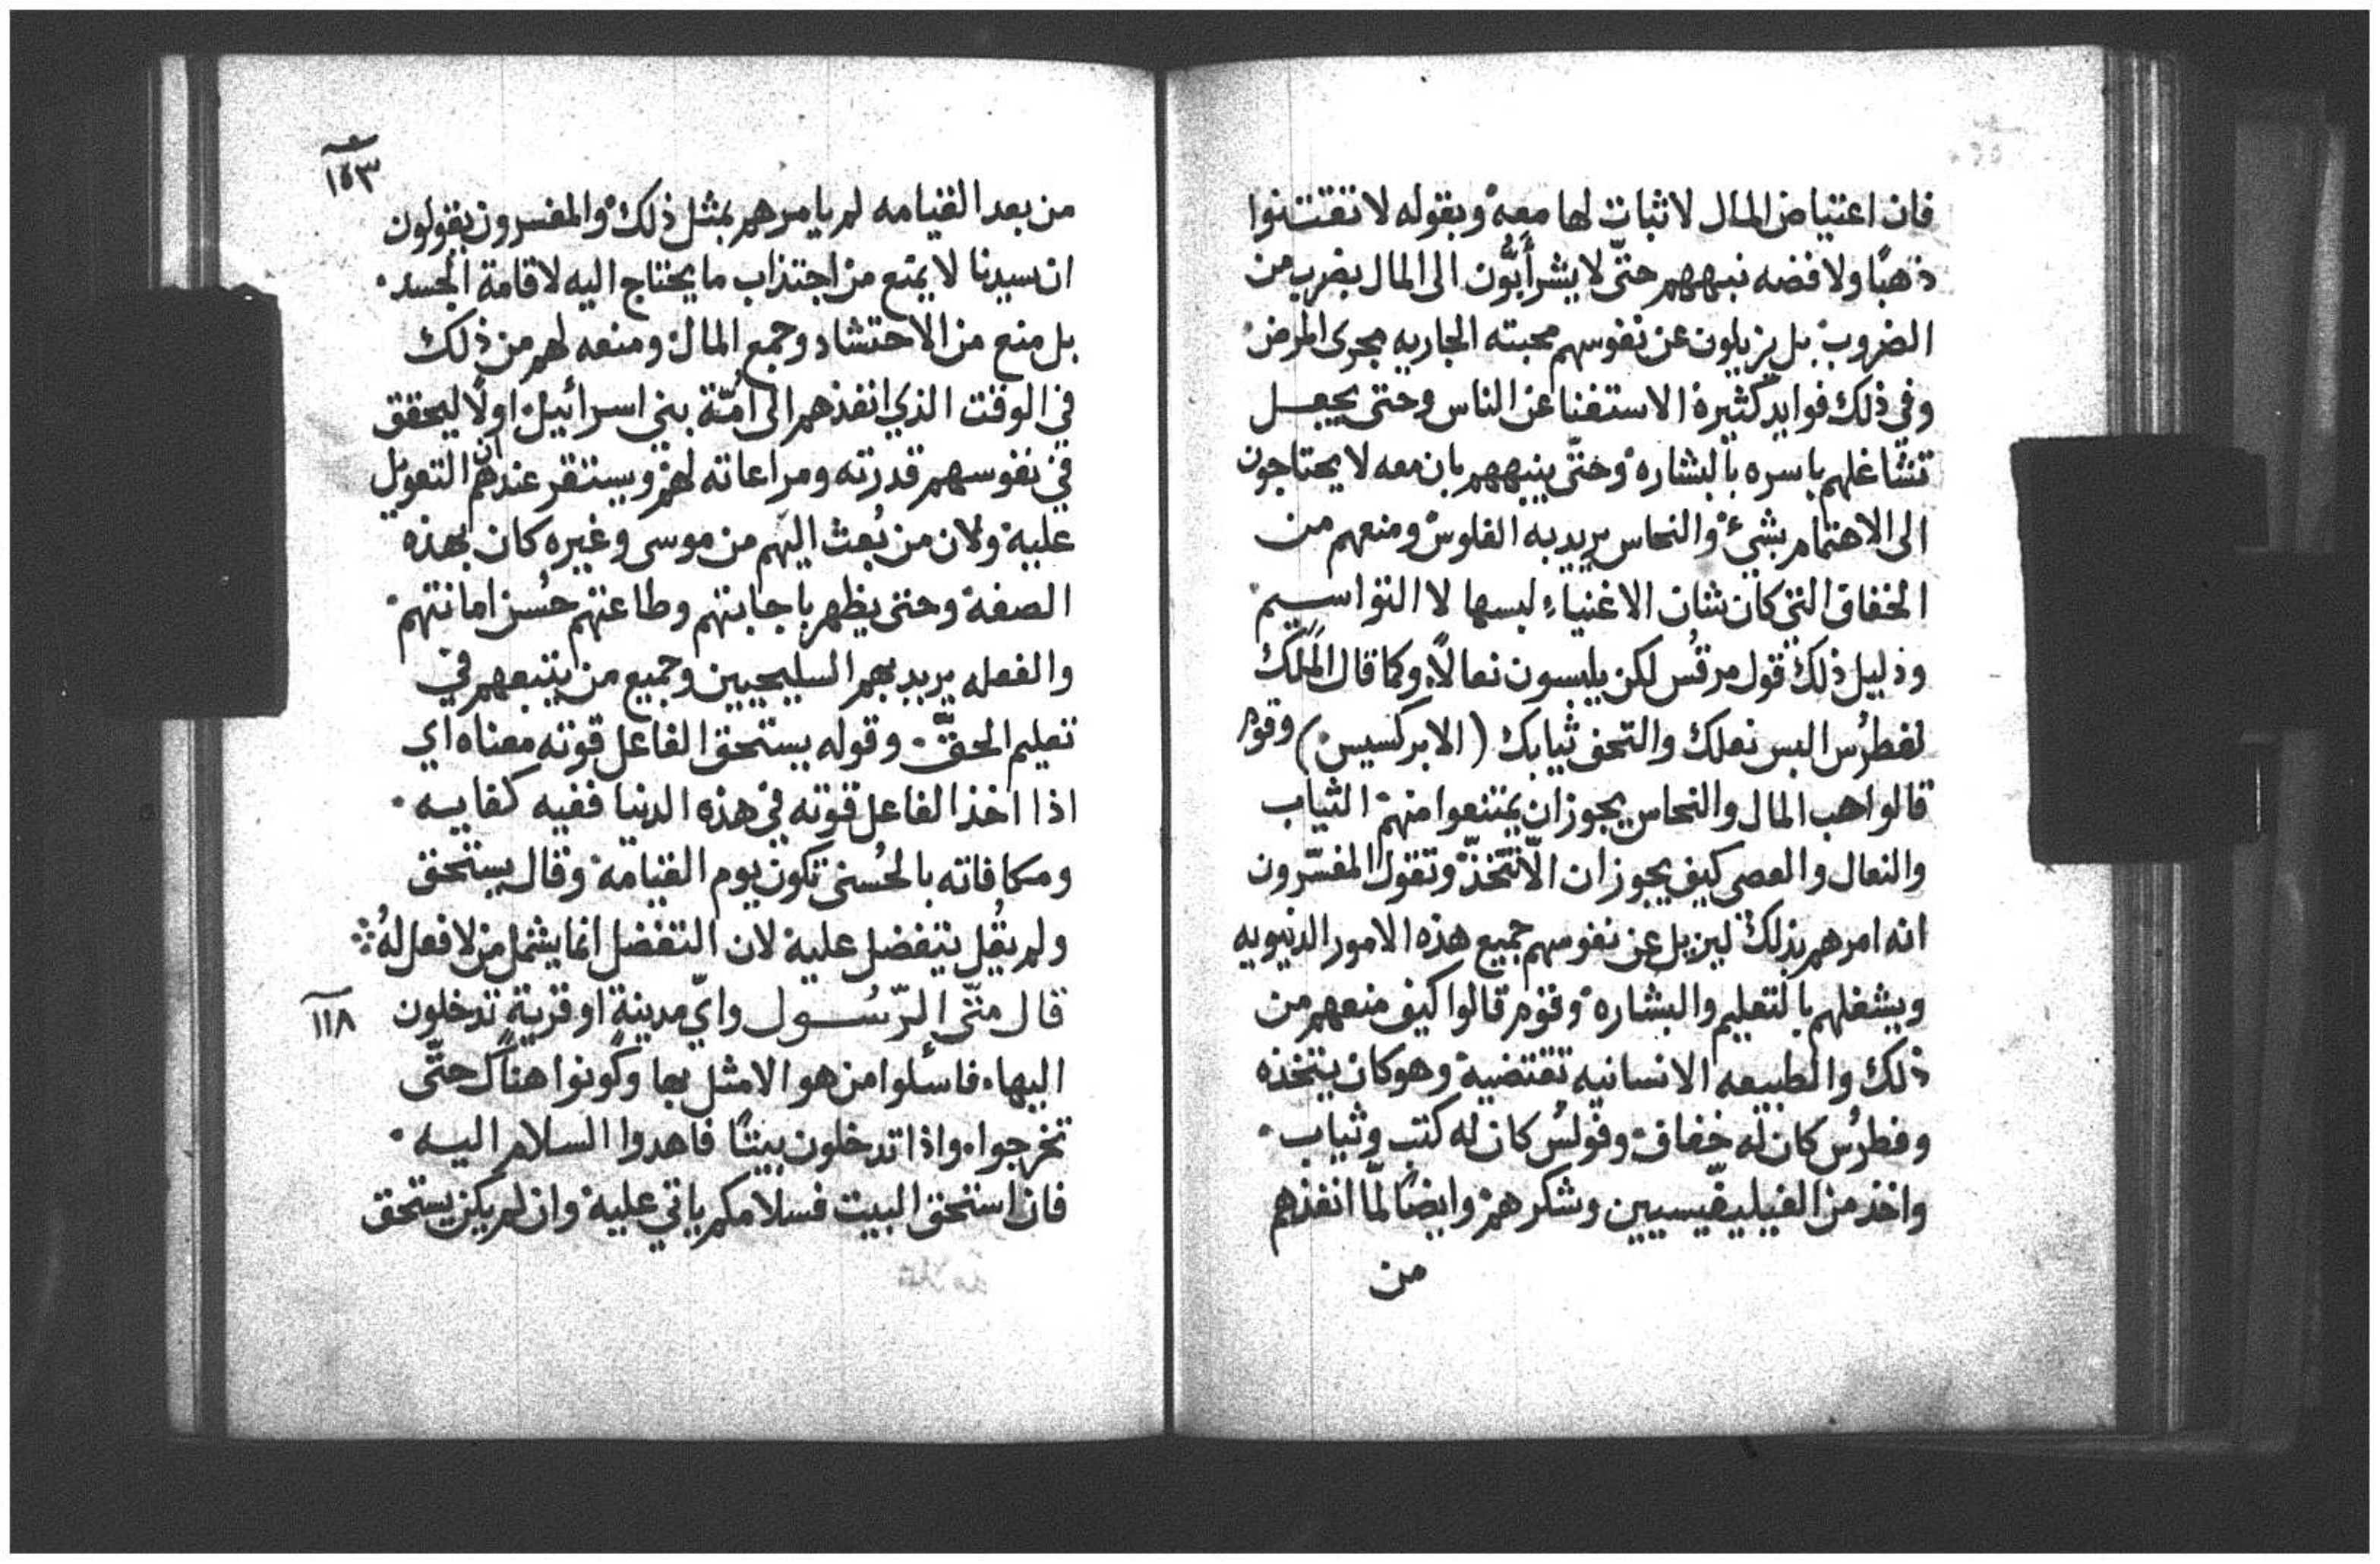 فان اعتياض المال لا ثبات لها معه وبقوله لا تقتنوا
ذهبًا ولا فضه نبههم حتّى لا يشرأبُّون الى المال بضرب من
الضروب بل يزيلون عن نفوسهم محبته الجاريه مجرى المرض
وفي ذلك فوايد كثيره الاستغنا عن الناس وحتى يجعل
تشاغلهم باسره بالبشاره وحتّى ينبههم بان معه لا يحتاجون
الى الاهتمام بشيء والنحاس يريد به الفلوس ومنعهم من
الخفاف التي كان شان الاغنياء لبسها لا النواسيم
ودليل ذلك قول مرقُس لكن يلبسون نعالًا وكما قال المَلَك
لفطرُس البس نعلك والتحف ثيابك (الابركسيس) وقوم
قالوا هب المال والنحاس يجوز ان يمتنعوا منهم الثياب
والنعال والعصي كيف يجوز ان الّا تتّخذ وتقول المفسّرون
انه امرهم بذلك ليزيل عن نفوسهم جميع هذه الامور الدنيويه
ويشغلهم بالتعليم والبشاره وقوم قالوا كيف منعهم من
ذلك والطبيعه الانسانيه تقتضيه وهو كان يتخذه
وفطرُس كان له خفاف وفولُس كان له كتب وثياب
واخذ من الفيليفّيسيين وشكرهم وايضًا لمّا انفذهم
من
١٥٣
من بعد القيامه لم يامرهم بمثل ذلك والمفسرون يقولون
ان سيدنا لا يمنع من اجتذاب ما يحتاج اليه لاقامة الجسد
بل منع من الاحتشاد وجمع المال ومنعه لهم من ذلك
في الوقت الذي انفذهم الى امّة بني اسرائيل اولًا ليحقق
في نفوسهم قدرته ومراعاته لهم ويستقر عندهم ان التعويل
عليه ولان من بُعث اليهم من موسى وغيره كان بهذه
الصفه وحتى يظهر باجابتهم وطاعتهم حُسن امانتهم
والفعله يريد بهم السليحيين وجميع من يتبعهم في
تعليم الحقّ وقوله يستحق الفاعل قوته معناه اي
اذا اخذ الفاعل قوته في هذه الدنيا ففيه كفايه
ومكافاته بالحُسنى تكون يوم القيامه وقال يستحق
ولم يقُل يتفضل عليه لان التفضل انما يشمل من لا فعل لهُ
١١٨ قال متّى الرّسُول وايّ مدينةٍ او قريةٍ تدخلون
اليها فاسألوا من هو الامثل بها وكونوا هناك حتّى
تخرجوا واذا تدخلون بيتًا فاهدوا السلام اليه
فان استحق البيت فسلامكم ياتي عليه وان لم يكن يستحق